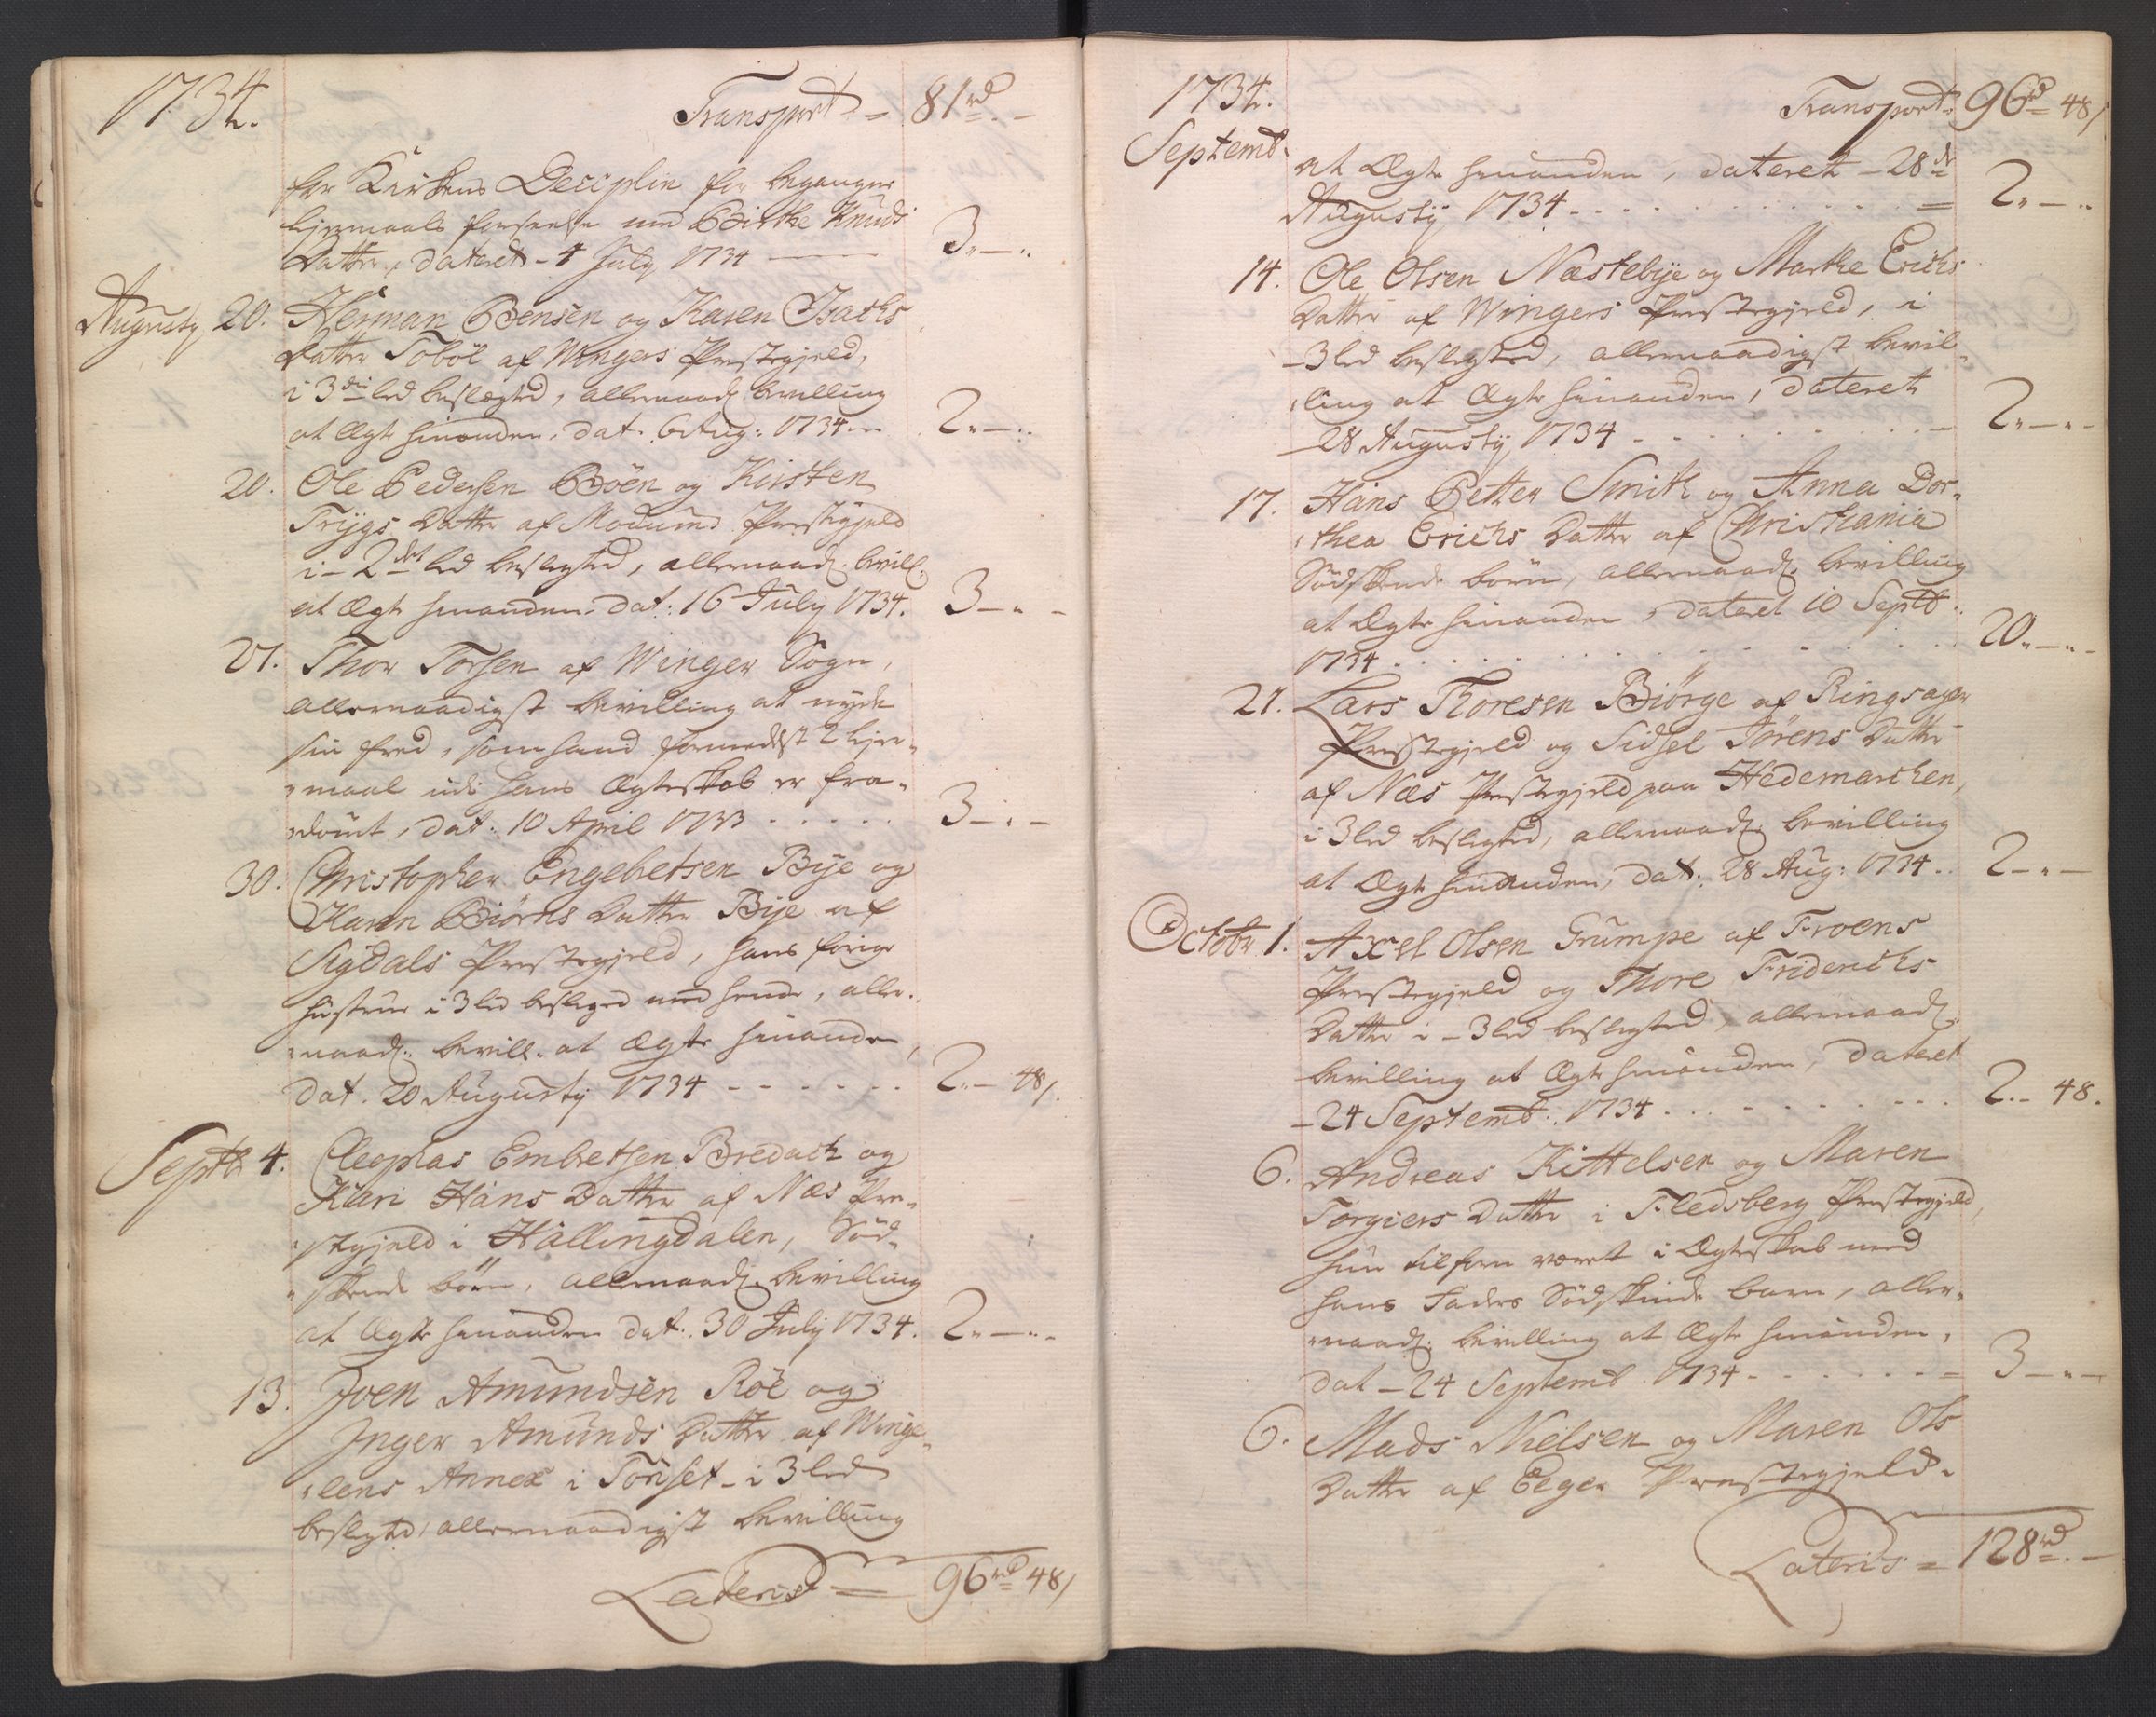 1734.
Transport = 81rd. –
for Kirkens Deciplin for begangne
lejermaals forseelse med Birthe Knuds
Datter, dateret - 4 July 1734 —— 3„–„
Augusty 20. Herman Bensen og Karen Isachs
Datter Toböl af Wingers Præstegjeld,
i 3die led beslægted, allernaad: bevilling
at Ægte hinanden, dat. 6 Aug: 1734 2„–„
20. Ole Pedersen Böen og Kirsten
Trÿgs Datter af Modums Præstegjeld
i - 2det led beslegted, allernaad. bevill:
at Ægte hinanden. dat: 16 July 1734. 3–„–
27. Thor Torsen af Winger Sogn,
allernaadigst bevilling at nyde
sin fred, som hand formedelst 2 lejer„
„maal udi hans Ægteskab er fra„
„dömt, dat: 10 April 1733 . . . . . 3–„–
30. Christopher Engebretsen Bÿe og
Karen Biörns Datter Bÿe af
Sigdals Præstegjeld, hans forige
hustrue i 3 led besleged med hende, aller„
„naad: bevill. at Ægte hinanden,
dat. 20 Augusty 1734 - - - - - - 2„– 48/.
Septbr 4. Cleophas Embretsen Bredach og
Kari Hans Datter af Næs Præ„
„stegjeld i Hallingdalen, Söd„
„skende börn, allernaad: bevilling
at Ægte hinanden dat: 30 July 1734. 2„–„–
13. Joen Amundsen Röe og
Inger Amunds Datter af Winge„
„lens Annex i Tönset - i 3 led
beslegted, allernaadigst bevilling
Lateris = 96rd 48/
1734.
Transport 96rd 48/
Septemb.
at Ægte hinanden, dateret - 28de
Augusty 1734 - . . . . . . . . . 2„–„
14. Ole Olsen Næstebÿe og Marthe Erichs
Datter af Wingers Præstegjeld, i
- 3 led beslegted, allernaadigst bevil„
„ling at Ægte hinanden, dateret
- 28 Augusty 1734 - . . . . . . . 2„–„–
17. Hans Petter Smith og Anna Dor„
„thea Erichs Datter af Christiania
Södskende börn, allernaad: bevilling
at Ægte hinanden, dateret 10 Septb:
1734 . . . . . . . . . . . . 20„–„–
21. Lars Thoresen Biörge af Ringsager
Præstegjeld og Sidsel Törens Datter
af Næs Præstegjeld paa Hedemarchen,
i 3 led beslegted, allernaad: bevilling
at Ægte hinanden, dat: 28 Aug: 1734 . . 2–„–
Octobr 1. Axel Olsen Grumpe af Froens
Præstegjeld og Thore Friderichs
Datter i - 3 led beslegted, allernaad:
bevilling at Ægte hinanden, dateret
- 24 Septemb: 1734 . . . . . . . . 2.– 48.
6. Andreas Kittelsen og Maren
Torgiers Datter i Fledsberg Præstegjeld,
hun tilforn været i Ægteskab med
hans Faders Södskinde barn, aller„
„naad: bevilling at Ægte hinanden,
dat - 24 Septemb. 1734 - . . . . . . 3–„–
6. Mads Nielsen og Maren Ols
Datter af Eeger Præstegjeld.
Lateris = 128rd. –